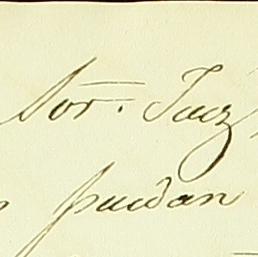 Sor. Juez
puedan